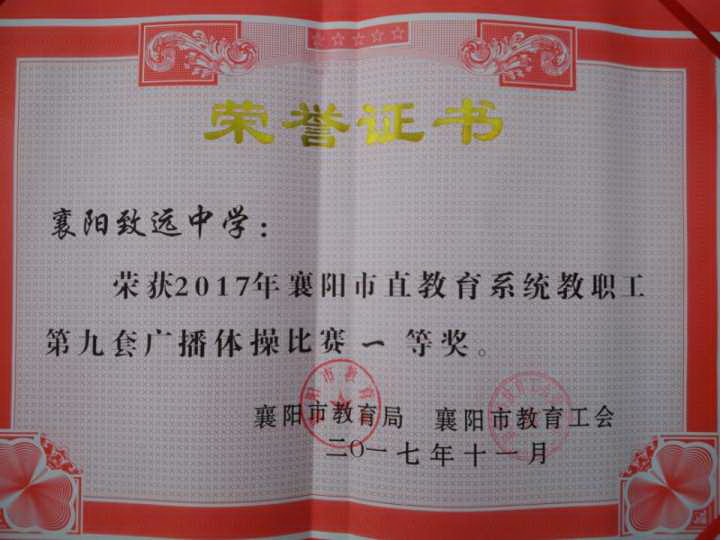 荣誉证书
襄阳致远中学：
荣获2017年襄阳市直教育系统教职工
第九套广播体操比赛一等奖。
襄阳市教育局 襄阳市教育工会
二〇一七年十一月